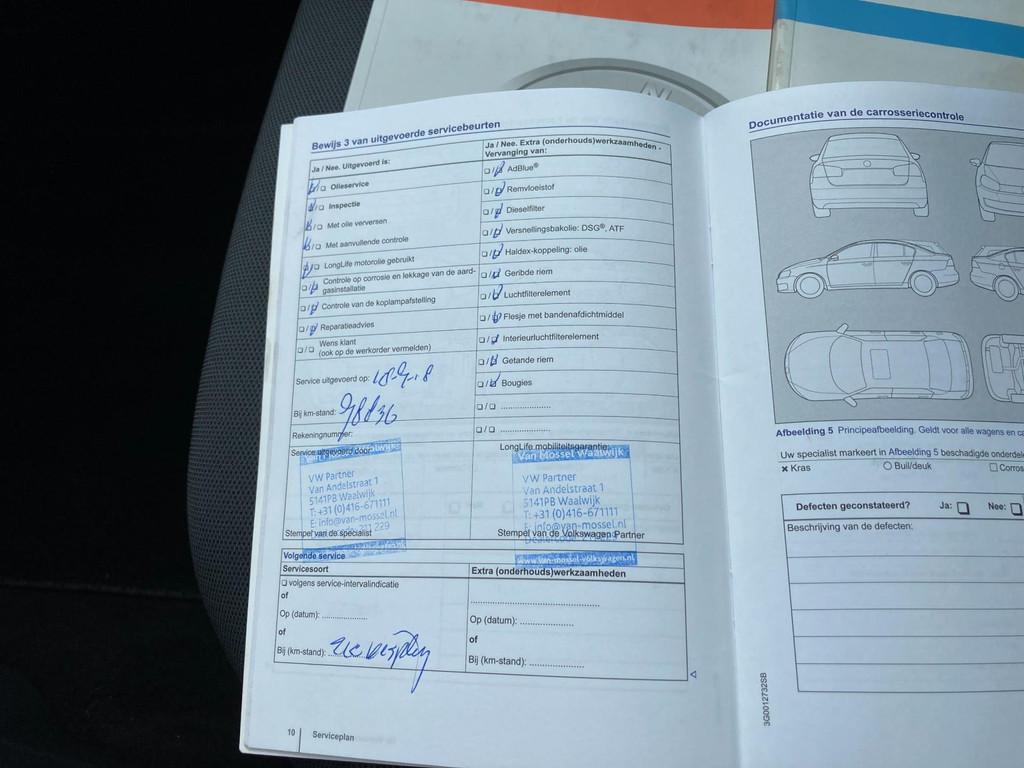 Bewijs 3 van uitgevoerde servicebeurten
Ja / Nee. Uitgevoerd is:
Olieservice
Inspectie
Met olie verversen
Met aanvullende controle
LongLife motorolie gebruikt
Controle op corrosie en lekkage van de aard-
gasinstallatie
Controle van de koplampafstelling
Reparatieadvies
Wens klant
(ook op de werkorder vermelden)
Service uitgevoerd op:
Bij km-stand: 98836
Rekeningnummer:
Service uitgevoerd door:
Van Mossel Waalwijk
VW Partner
Van Andelstraat 1
5141PB Waalwijk
T: +31 (0)416-671111
E: info@van-mossel.nl
Stempel van de specialist
Ja / Nee. Extra (onderhouds)werkzaamheden -
Vervanging van:
AdBlue®
Remvloeistof
Dieselfilter
Versnellingsbakolie: DSG®, ATF
Haldex-koppeling: olie
Geribde riem
Luchtfilterelement
Flesje met bandenafdichtmiddel
Interieurluchtfilterelement
Getande riem
Bougies
LongLife mobiliteitsgarantie:
Van Mossel Waalwijk
VW Partner
Van Andelstraat 1
5141PB Waalwijk
T: +31 (0)416-671111
E: info@van-mossel.nl
Stempel van de Volkswagen Partner
www.van-mossel-volkswagen.nl
Volgende service
Servicesoort
volgens service-intervalindicatie
of
Op (datum):
of
Bij (km-stand):
Extra (onderhouds)werkzaamheden
Op (datum):
of
Bij (km-stand):
10 Serviceplan
Documentatie van de carrosseriecontrole
Afbeelding 5 Principeafbeelding. Geldt voor alle wagens en
Uw specialist markeert in Afbeelding 5 beschadigde
x Kras
Buil/deuk
Defecten geconstateerd? Ja: Nee:
Beschrijving van de defecten:
3G0012732SB